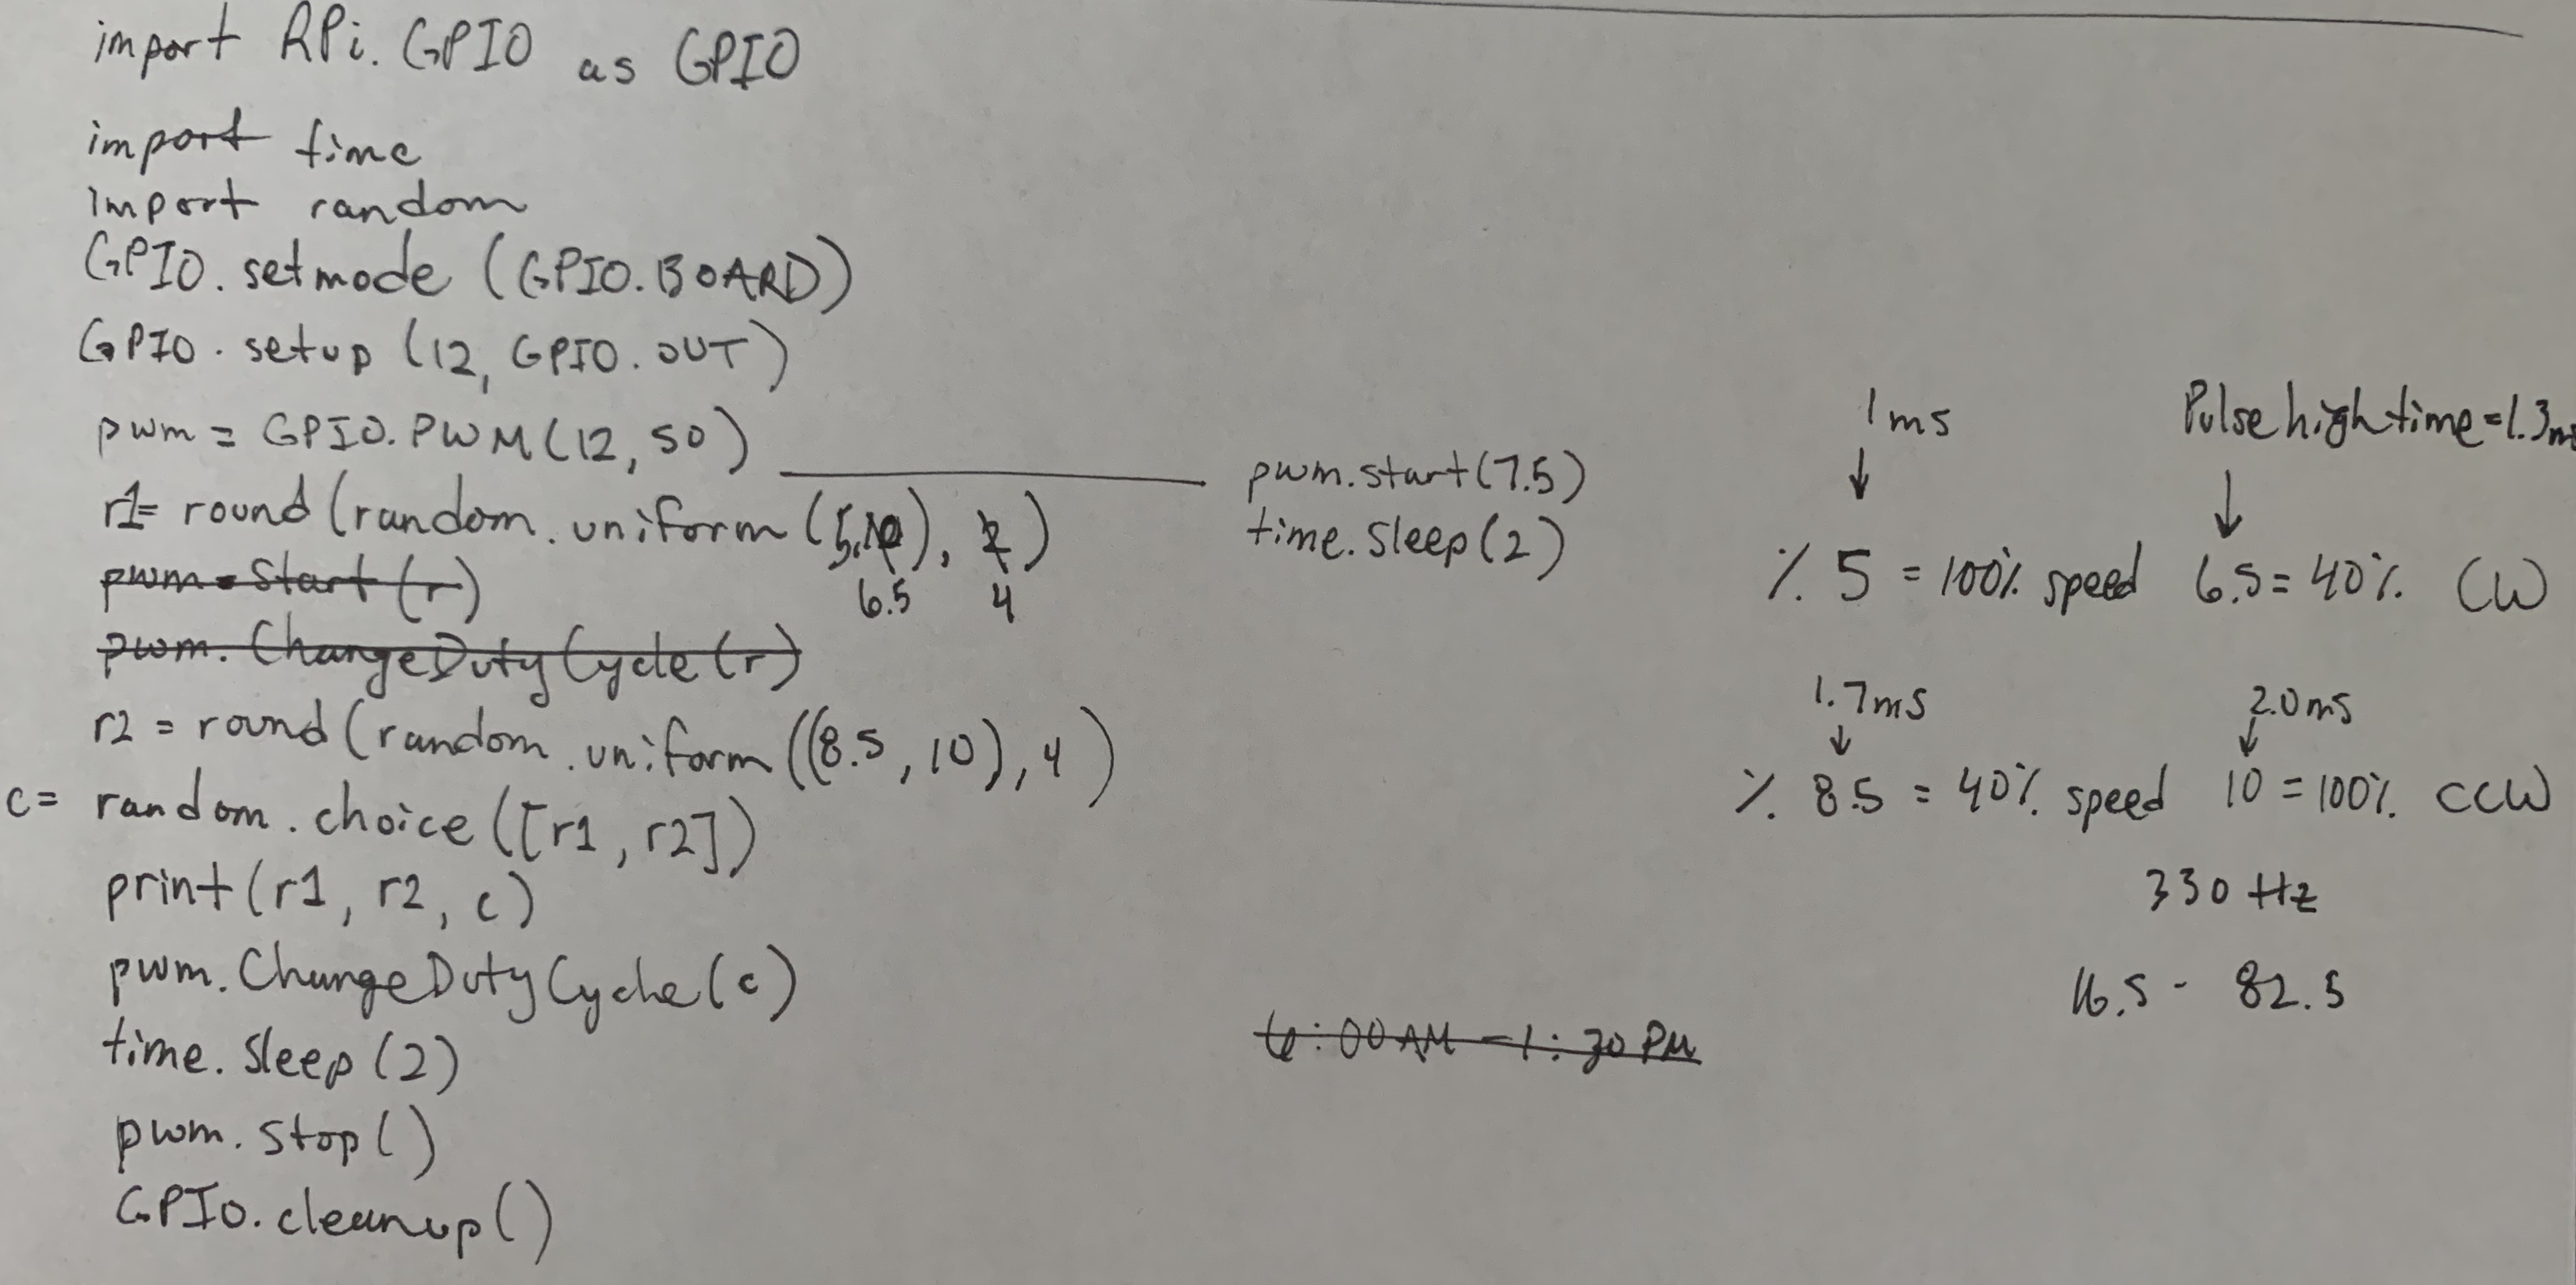 import RPi.GPIO as GPIO
import time
import random
GPIO.setmode (GPIO.BOARD)
GPIO.setup (12, GPIO.OUT)
pwm = GPIO.PWM(12, 50)
pwm.start(7.5)
time.sleep(2)
r1= round (random.uniform (5,10), 2)
6.5 4
pwm.start (r)
pwm.ChangeDutyCycle (r)
r2 = round (random.uniform((8.5, 10), 4)
c= random.choice([r1, r2])
print(r1, r2, c)
pwm.ChangeDutyCycle(c)
time.sleep(2)
pwm.stop()
GPIO.cleanup()
1ms Pulse high time=1.3ms
% 5 = 100% speed 6.5= 40% CW
1.7ms 2.0ms
% 8.5 = 40% speed 10 = 100% CCW
330 Hz
16.5 - 82.5
6:00 AM - 1:30 PM